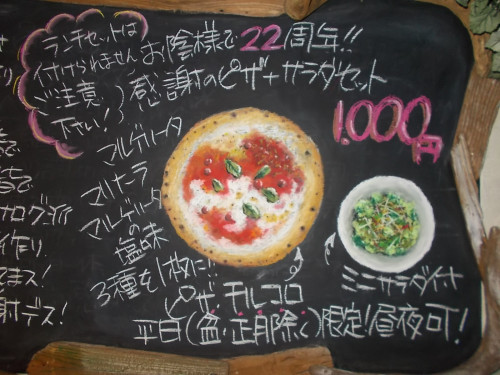 ランチセットは
付けられません
ご注意
下さい!
お陰様で22周年!!
感謝のピザ+サラダセット
1.000円
マルゲリータ
マリナーラ
マルゲリータ
の
塩味
3種を1枚に!!
ピザ チルコロ
ミニサラダ付
平日(盆・正月除く)限定!昼夜可!
で
作り
ます!
射デス!